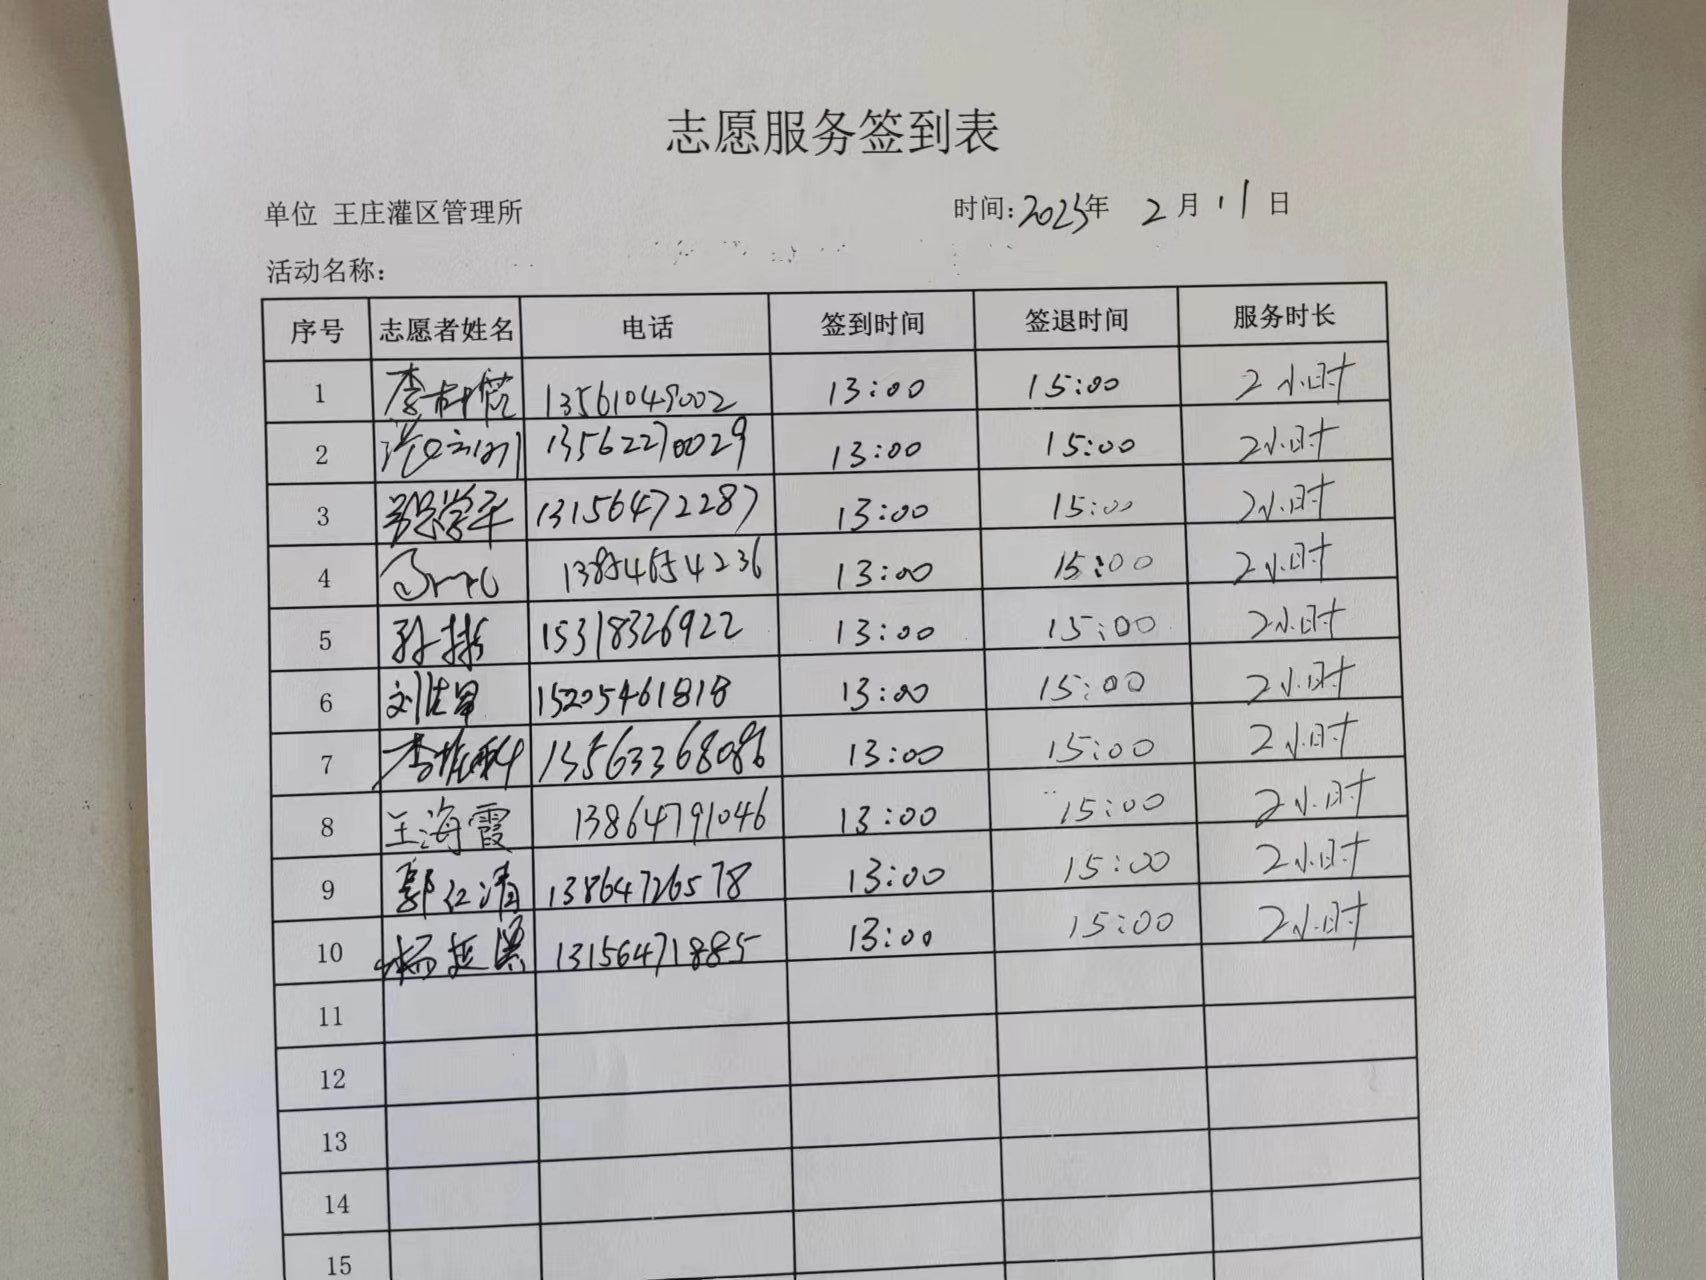 志愿服务签到表
单位 王庄灌区管理所 时间: 2023年 2月 11日
活动名称:
序号 志愿者姓名 电话 签到时间 签退时间 服务时长
1 李 13561049002 13:00 15:00 2小时
2 13562270029 13:00 15:00 2小时
3 13156472287 13:00 15:00 2小时
4 13854654236 13:00 15:00 2小时
5 孙 15318326922 13:00 15:00 2小时
6 刘 15205461818 13:00 15:00 2小时
7 李 13563368086 13:00 15:00 2小时
8 王海霞 13864791046 13:00 15:00 2小时
9 郭红清 13864726578 13:00 15:00 2小时
10 杨 13156471885 13:00 15:00 2小时
11
12
13
14
15